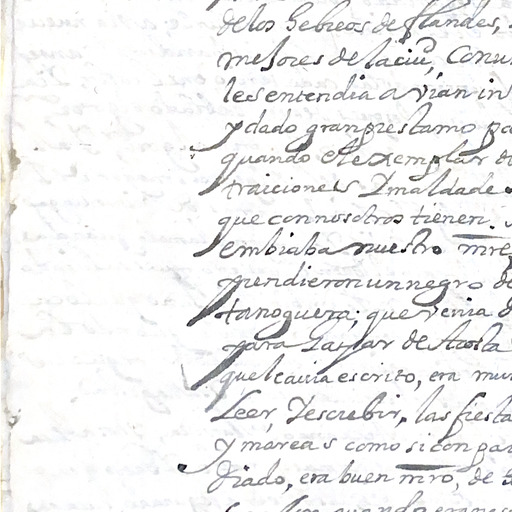 de los hebreos de flandes,
mejores de la ciu.d, Con
les entendia avian in
y dado gran prestamo pa
quando ele exemplar d
traiciones Y maldade
que con nosotros tienen.
embiaba nuestro mr̅e
prendieron un negro de
tanoguera; que venia d
para Gaspar de Acosta
que le avia escrito, era mu
Leer, Y escrebir, las fiesta
y mareas como si con pa
diado, era buen mr̅o, de